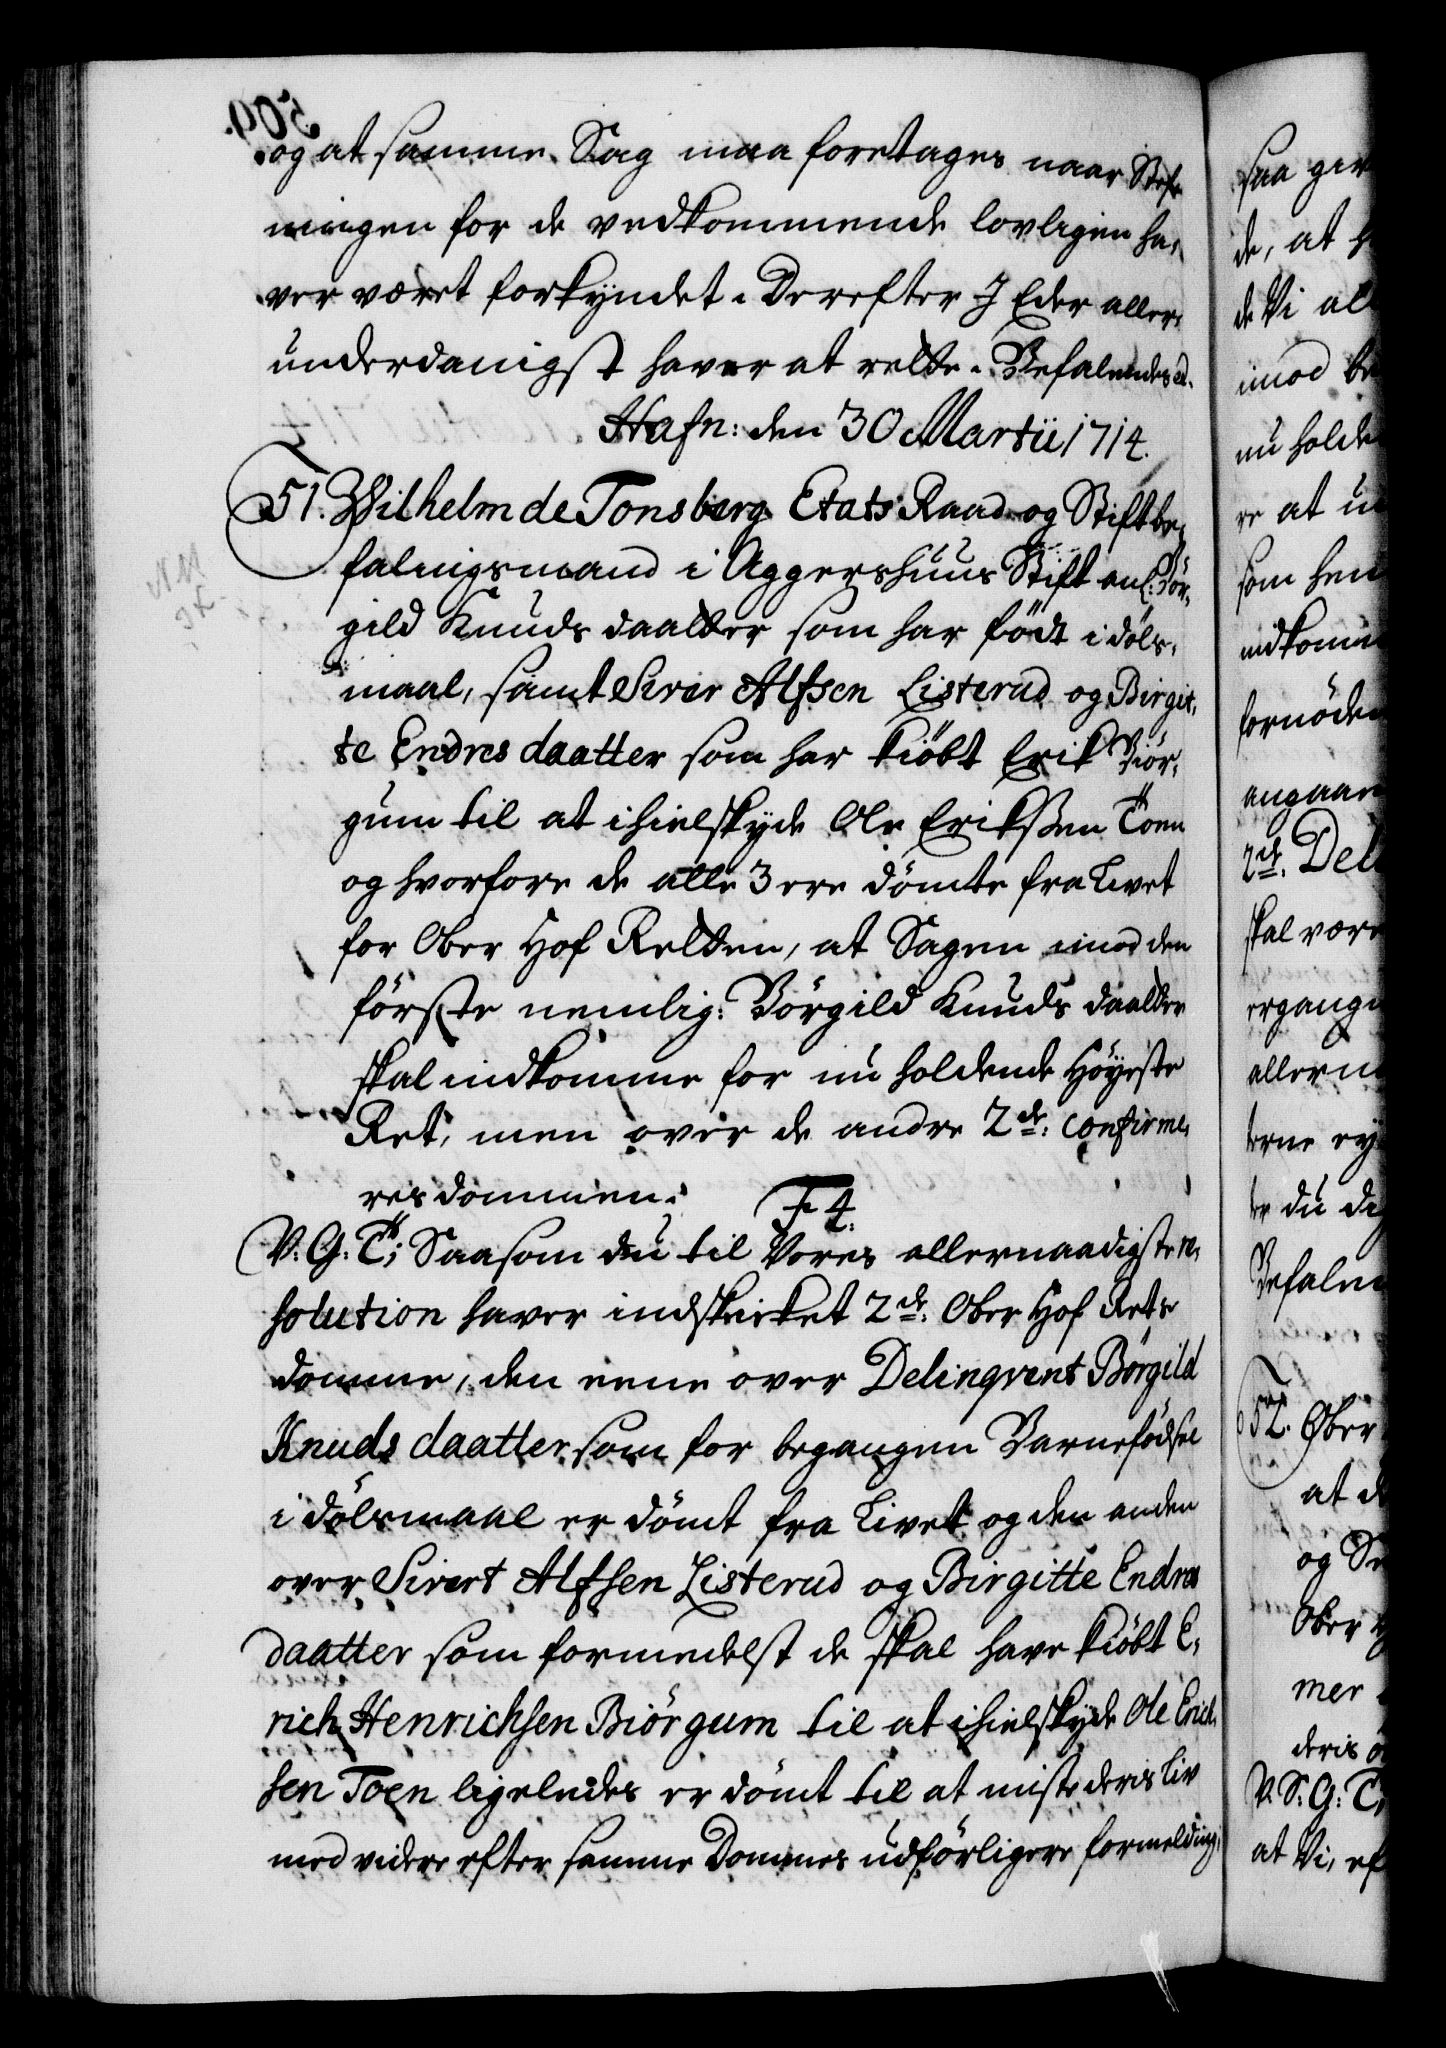 509.
og at samme Sag maa foretages naar Stef-
ningen for de vedkommende lovligen ha-
ver været forkyndet. Derefter I Eder aller-
underdanigst haver at rette. Befalendes ed.
Hafn: den 30 Martii 1714.
51. Wilhelm de Tonsberg Etats Raad og Stiftbe-
falingsmand i Aggershuus Stift anl: Bör-
gild Knuds daatter som har födt i döls-
maal, samt Siver Alfsen Listerud og Birgit-
te Endres daatter som har kiöbt Erik Biör-
gum til at ihielskyde Ole Erikssen Toen
og hvorfore de alle 3 ere dömte fra Livet
for Ober Hof Retten, at Sagen imod den
förste nemlig: Börgild Knuds daatter
skal indkomme for nu holdende Höyeste
Ret, men over de andre 2de: confirme-
res dommen.
F 4.
V. G: T; Saasom du til Vores allernaadigste re-
solution haver indskicket 2de: Ober Hof Rets
domme, den eene over Delinqvent Börgild
Knuds daatter som for begangen Barnefödsel
i dölsmaal er dömt fra Livet og den anden
over Sivert Alfsen Listerud og Birgitte Endres
daatter som formedelst de skal have kiöbt E-
rich Henrichsen Biörgum til at ihielskyde Ole Erich-
sen Toen ligeledes er dömt til at miste deris Liv
med videre efter samme Dommes udförligere formelding,
saa giv
de, at
de Vi all
imod
nu holde
re at
som hen
indkomm
fornöden
angaar
2de. Del
skal være
ergange
allern
terne ey
ter du dig
Befalen
52. Ober
at d
og
Ober
mer
deris
V. S: G: T,
at Vi, ef